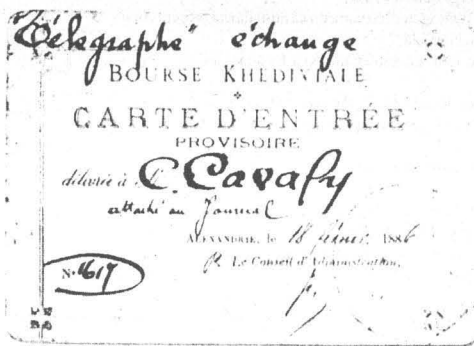 "Télégraphe" échange
BOURSE KHÉDIVIALE
CARTE D'ENTRÉE
PROVISOIRE
délivrée à M. C. Cavafy
attaché au Journal
ALEXANDRIE, le 18 février 1886
P. Le Conseil d'Administration,
N° 1617